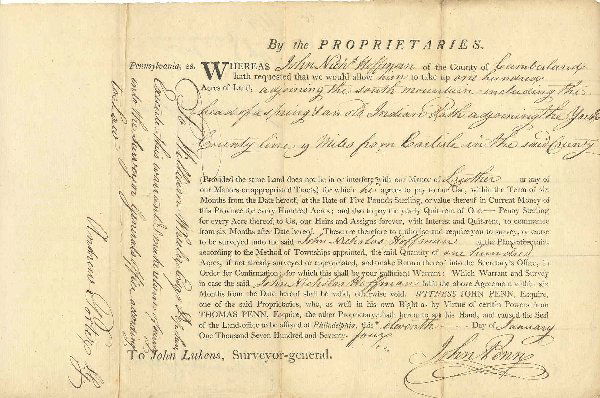 By the PROPRIETARIES.
Pennsylvania, ss. WHEREAS John Nich.s Hoffman of the County of Cumberland
hath requested that we would allow him to take up one hundred
Acres of Land, adjoining the south mountain including the
head of a Spring & an old Indian Path adjoining the York
County line 9 Miles from Carlisle in the said County
(Provided the same Land does not lie in or interfere with our Manor of Lowther or any of
our Manors or appropriated Tracts) for which he agrees to pay to our Use, within the Term of six
Months from the Date hereof, at the Rate of Five Pounds Sterling, or value thereof in Current Money of
this Province for every Hundred Acres; and also to pay the yearly Quit-rent of One Penny Sterling
for every Acre thereof, to Us, our Heirs and Assigns forever, with Interest and Quit-rent, to commence
from six Months after Date hereof. These are therefore to authorise and require you to survey, or cause
to be surveyed unto the said John Nicholas Hoffman at the Place aforesaid,
according to the Method of Townships appointed, the said Quantity of one hundred
Acres, if not already surveyed or appropriated, and make Return thereof into the Secretary's Office, in
Order for Confirmation, for which this shall be your sufficient Warrant: Which Warrant and Survey
in case the said John Nicholas Hoffman fulfil the above Agreement within six
Months from the Date hereof shall be valid, otherwise void. WITNESS JOHN PENN, Esquire,
one of the said Proprietaries, who, as well in his own Right as by Virtue of certain Powers from
THOMAS PENN, Esquire, the other Proprietary, hath hereunto set his Hand, and caused the Seal
of the Land-office to be affixed at Philadelphia, this eleventh Day of January
One Thousand Seven Hundred and Seventy four
John Penn
To John Lukens, Surveyor-general.
To William
this warrant & make return
into the Surveyor Generals office according
to Law